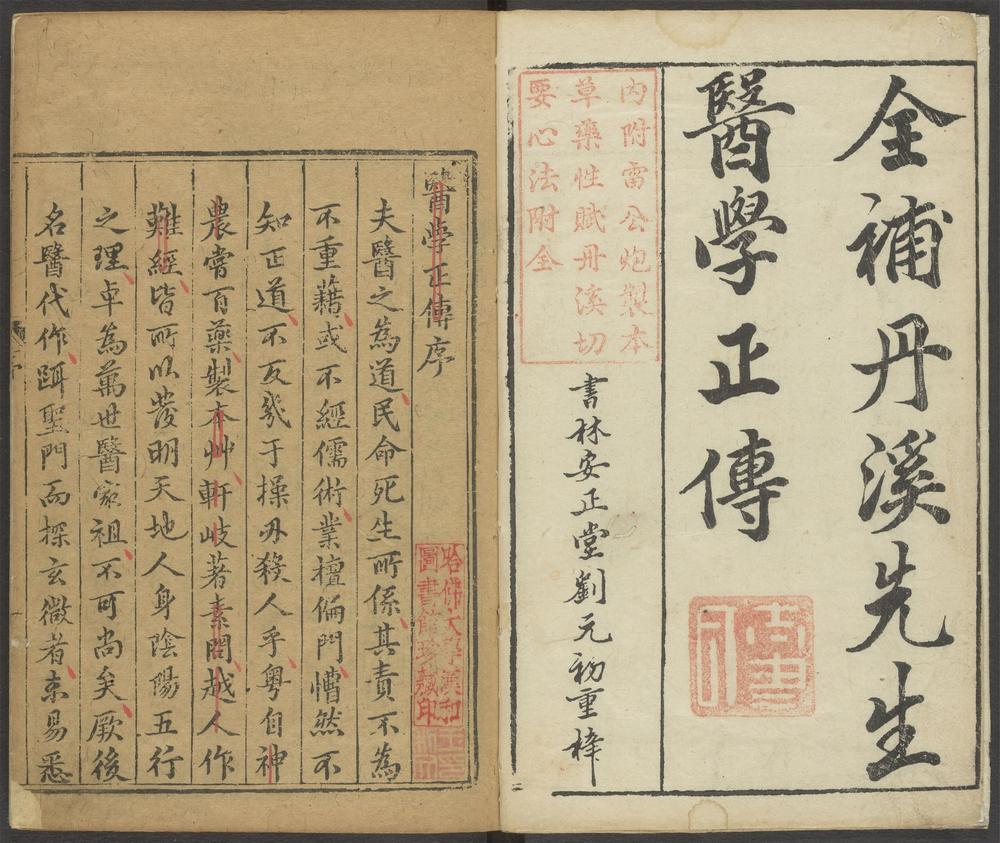 全補丹溪先生
醫學正傳
內附雷公炮製本
草藥性賦丹溪切
要心法附全
書林安正堂劉元初重梓
醫学正傳序
夫醫之為道民命死生所係其責不為
不重藉或不經儒術業擅偏門懵然不
知正道不反幾于操刃殺人乎粵自神
農嘗百藥製本艸軒岐著素問越人作
難經皆所以發明天地人身陰陽五行
之理卓為萬世醫家祖不可尚矣厥後
名醫代作躡聖門而探玄微者未易悉
哈佛大學漢和
圖書館珍藏印